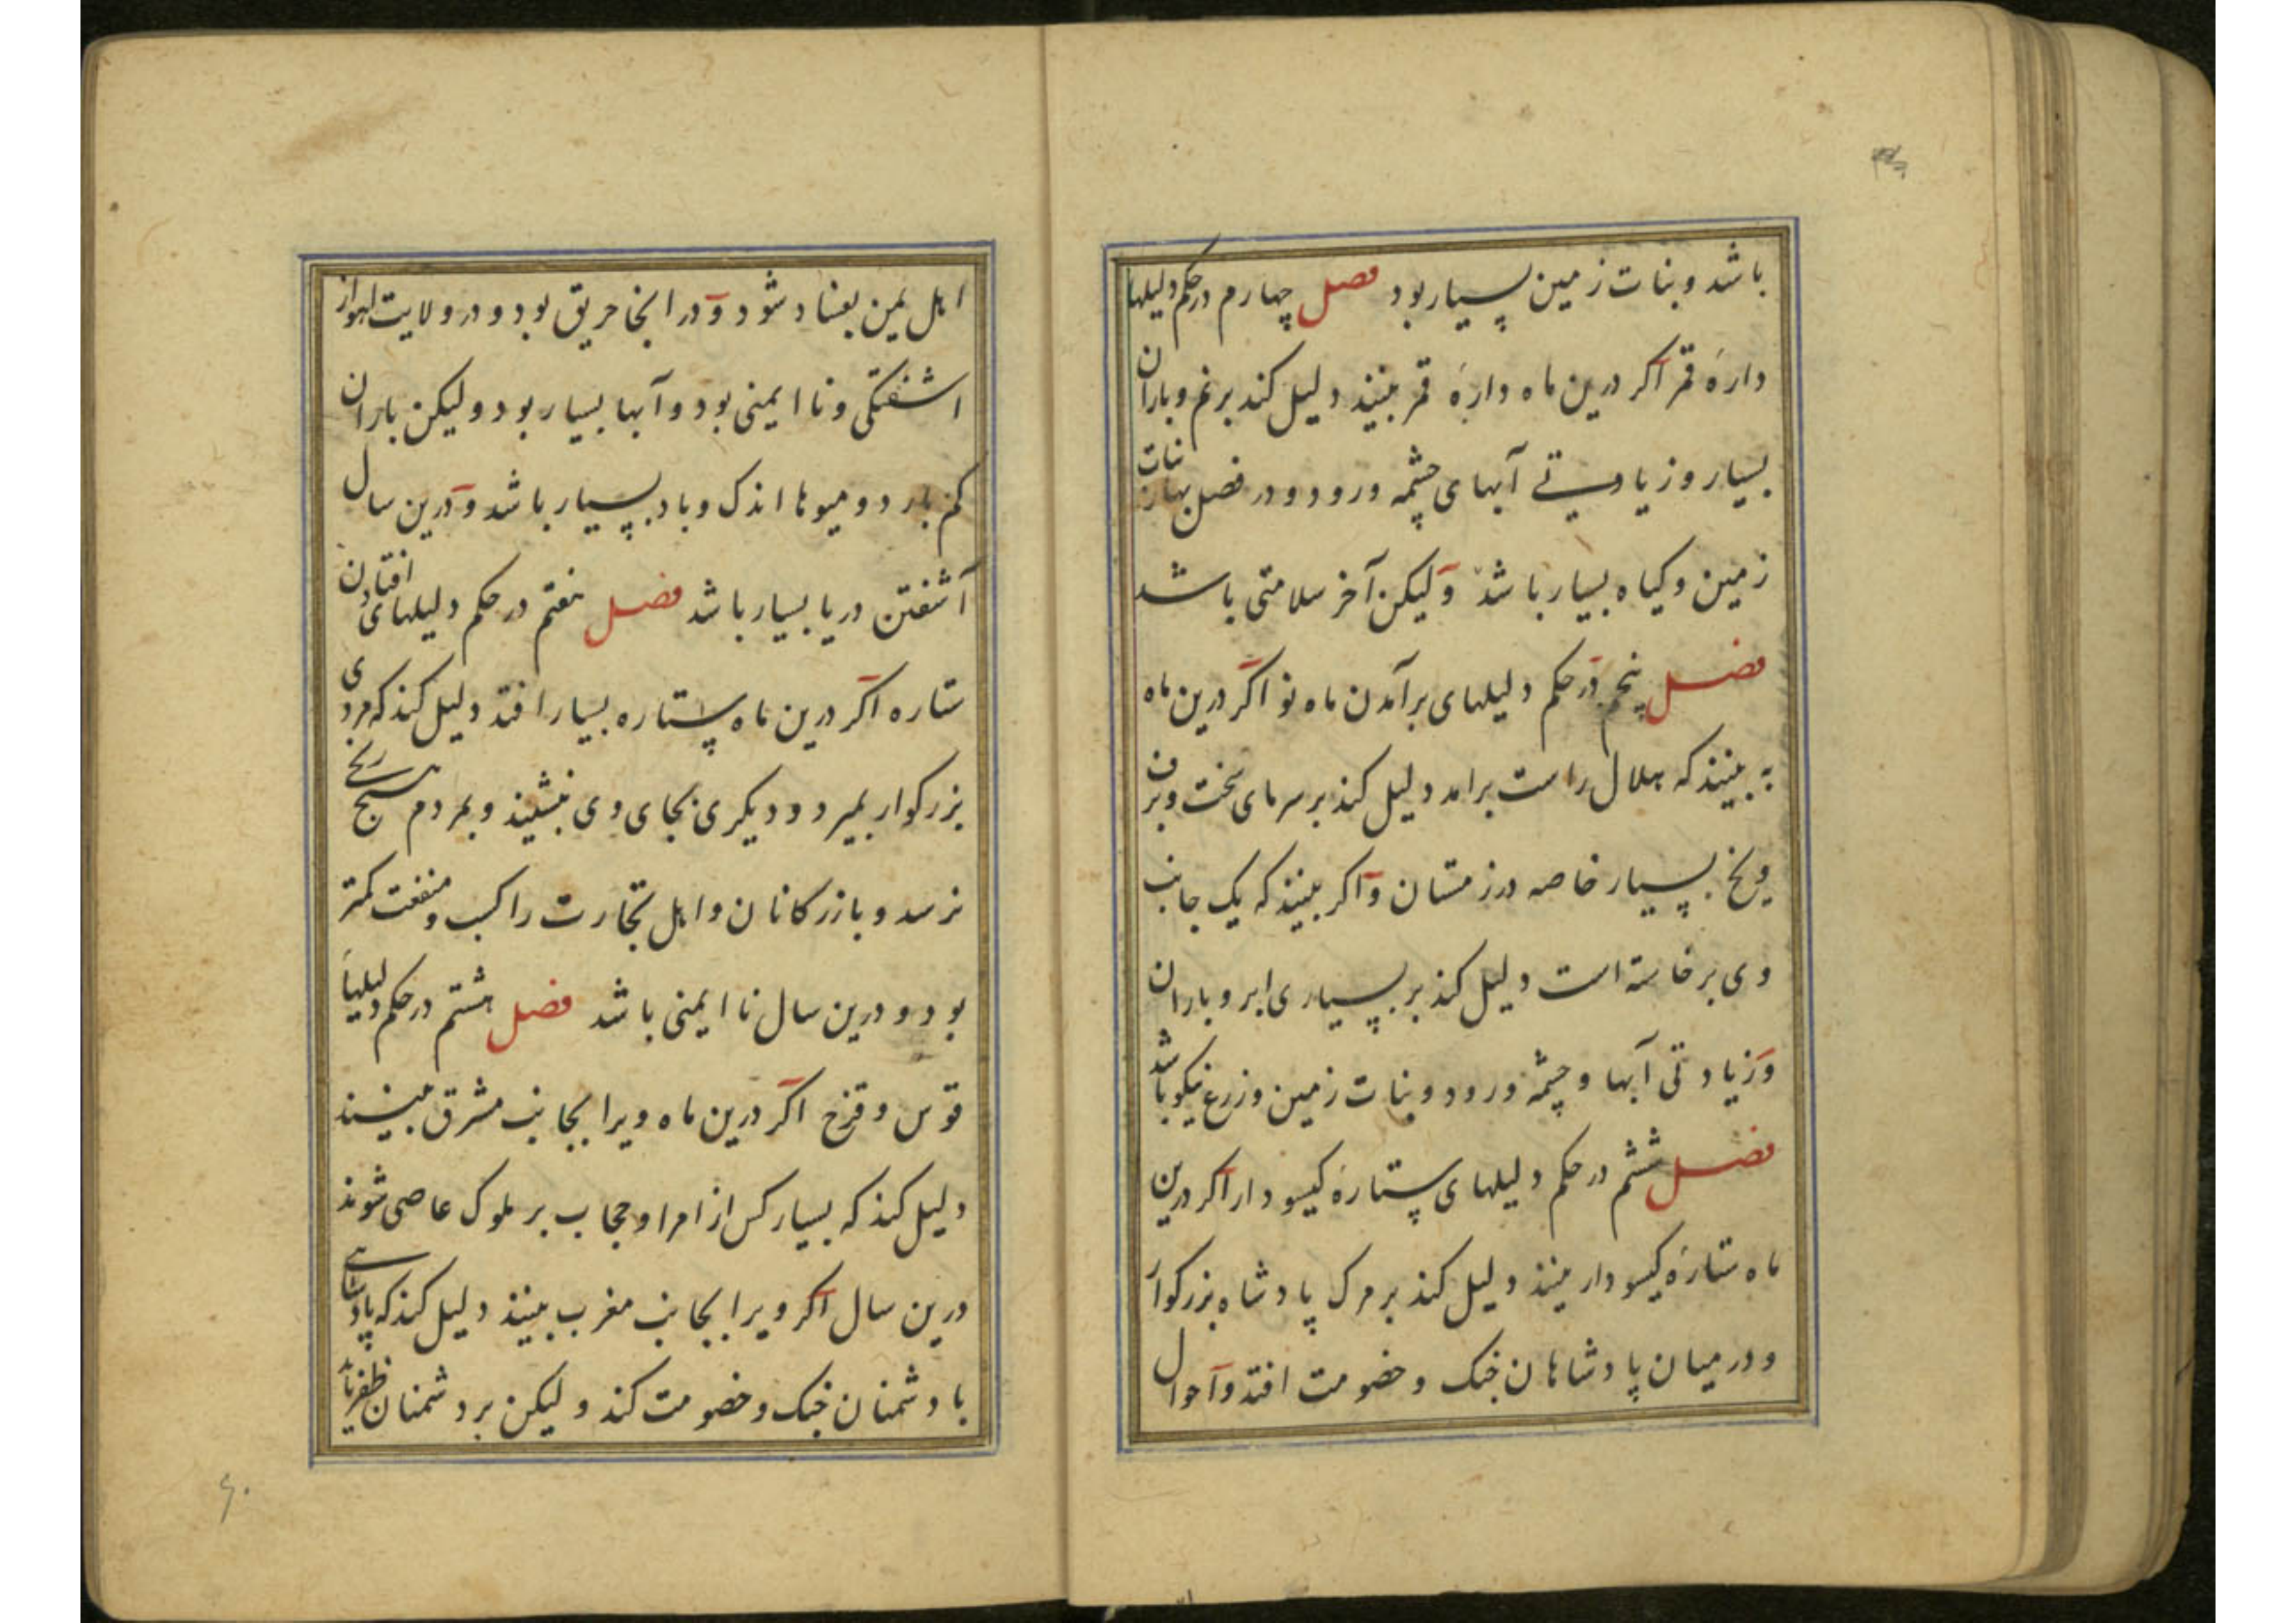 باشد و بنات زمین بسیار بود فصل چهارم در حکم دلیلها
دارهٔ قمر اکر درین ماه دارهٔ قمر بینند دلیل کند بر نم و باران
بسیار و زیادتی آبهای چشمه و رود و در فصل بهار نبات
زمین و کیاه بسیار باشد ولیکن آخر سلامتی باشد
فصل پنجم در حکم دلیلهای برآمدن ماه نو اکر درین ماه
به بینند که هلال راست برامد دلیل کند بر سرمای سخت و برف
و یخ بسیار خاصه در زمستان و اکر بینند که یک جانب
وی برخاسته است دلیل کند بر بسیاری ابر و باران
و زیادتی آبها و چشمه و رود و بنات زمین و زرع نیکو باشد
فصل ششم در حکم دلیلهای ستارهٔ کیسودار اکر درین
ماه ستارهٔ کیسودار بینند دلیل کند بر مرک پادشاه بزرکوار
و در میان پادشاهان جنک و خصومت افتد و احوال
اهل یمن بفساد شود و در انجا حریق بود و در ولایت اهواز
اشفتکی و نا ایمنی بود و آبها بسیار بود ولیکن باران
کم بارد و میوها اندک و باد بسیار باشد و درین سال
آشفتن دریا بسیار باشد فصل هفتم در حکم دلیلهای افتادن
ستاره اکر درین ماه ستاره بسیار افتد دلیل کند که مردی
بزرکوار بمیرد و دیکری بجای وی بنشیند و بمردم هیچ رنج
نرسد و بازرکانان و اهل تجارت را کسب و منفعت کمتر
بود و درین سال نا ایمنی باشد فصل هشتم در حکم دلیلها
قوس و قزح اکر درین ماه ویرا بجانب مشرق بینند
دلیل کند که بسیار کس از امرا و حجاب بر ملوک عاصی شوند
درین سال اکر ویرا بجانب مغرب بینند دلیل کند که پادشاهی
با دشمنان جنک و خصومت کند ولیکن بر دشمنان ظفر یابد
۶۰